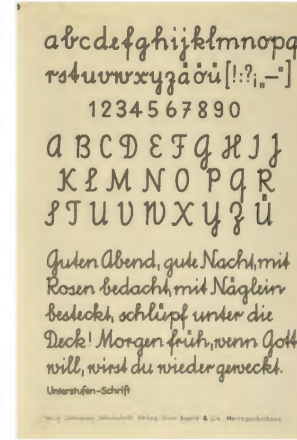 abcdefghijklmnopq
rstuvwxyzäöü[!:?¡„—"]
1234567890
ABCDEFGHIJ
KLMNOPQR
STUVWXYZÜ
Guten Abend, gute Nacht, mit
Rosen bedacht, mit Näglein
besteckt, schlüpf unter die
Deck! Morgen früh, wenn Gott
will, wirst du wieder geweckt.
Unterstufen-Schrift
Verlag Ernst Ingold & Co., Herzogenbuchsee